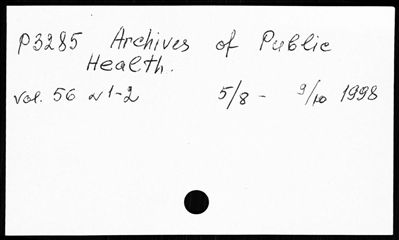 P3285 Archives of Public
Health.
vol. 56 N 1-2 5/8 - 9/10 1998